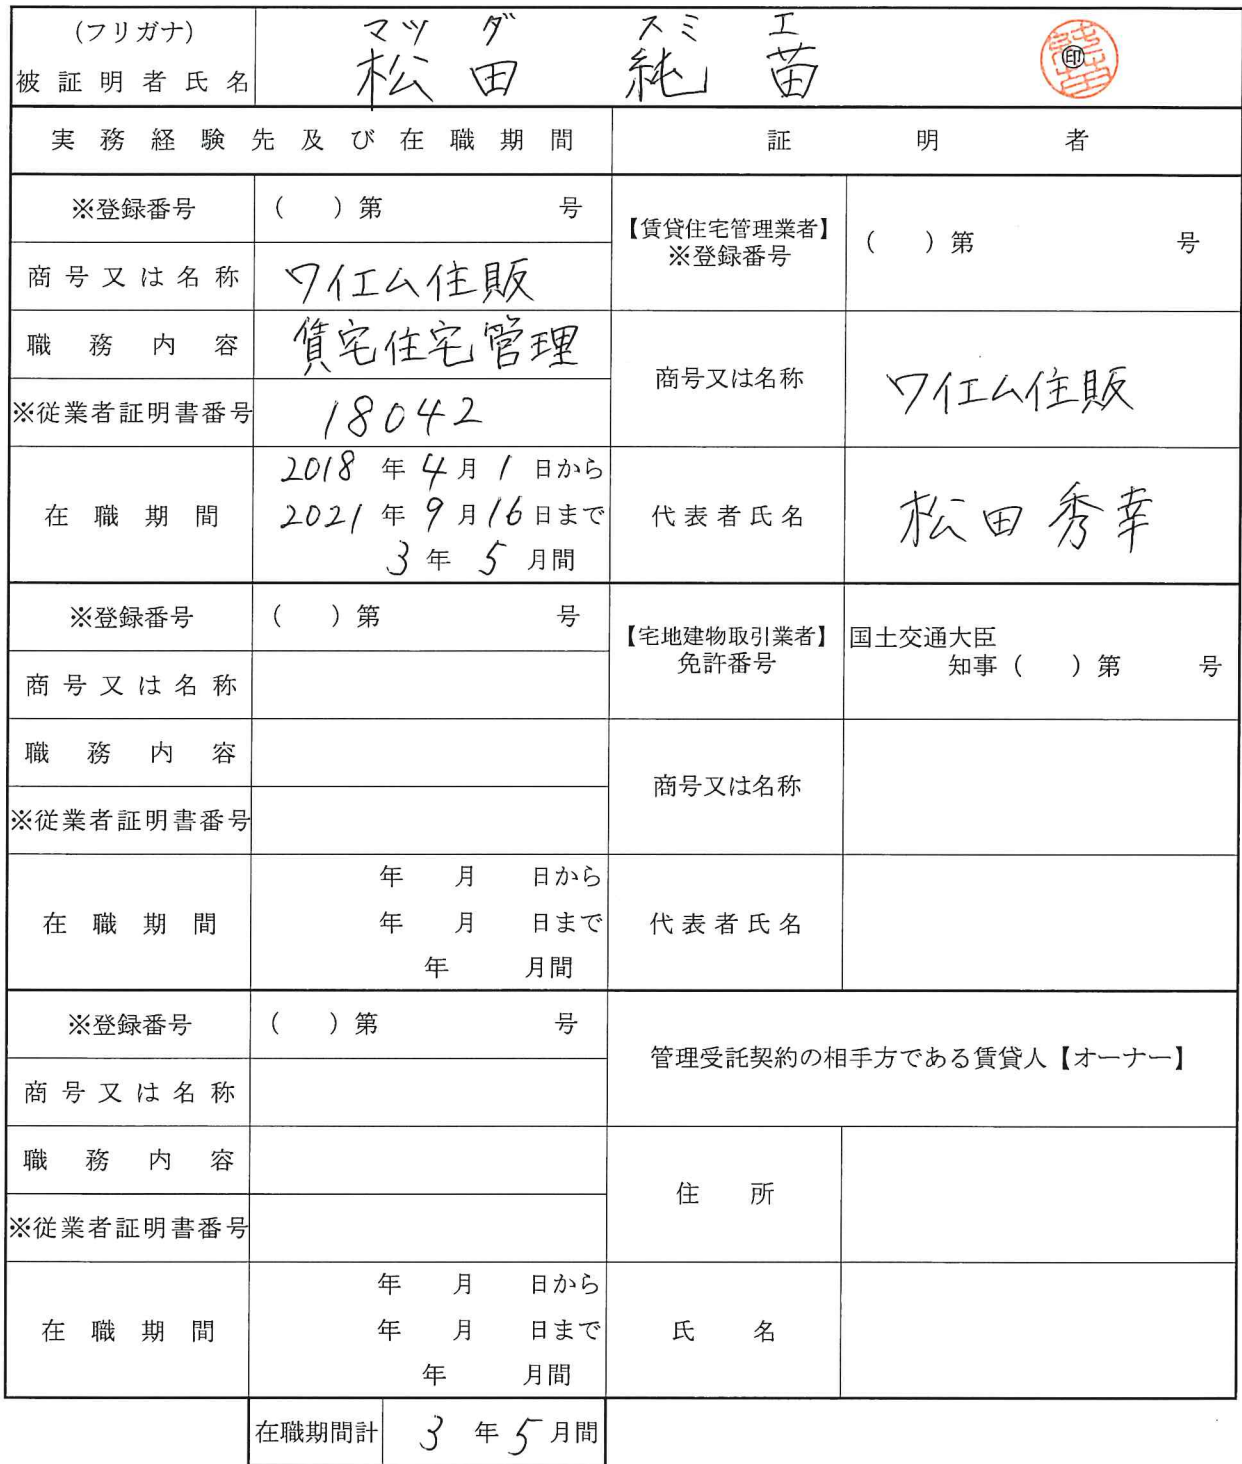 (フリガナ) マツダ スミエ
被証明者氏名 松田 純苗 ㊞
実務経験先及び在職期間 証明者
※登録番号 ( )第 号
商号又は名称 ワイエム住販
職務内容 賃宅住宅管理
※従業者証明書番号 18042
在職期間
2018年4月1日から
2021年9月16日まで
3年5月間
【賃貸住宅管理業者】
※登録番号 ( )第 号
商号又は名称 ワイエム住販
代表者氏名 松田秀幸
※登録番号 ( )第 号
商号又は名称
職務内容
※従業者証明書番号
在職期間
年 月 日から
年 月 日まで
年 月間
【宅地建物取引業者】
免許番号
国土交通大臣
知事( )第 号
商号又は名称
代表者氏名
※登録番号 ( )第 号
商号又は名称
職務内容
※従業者証明書番号
在職期間
年 月 日から
年 月 日まで
年 月間
管理受託契約の相手方である賃貸人【オーナー】
住所
氏名
在職期間計 3年5月間